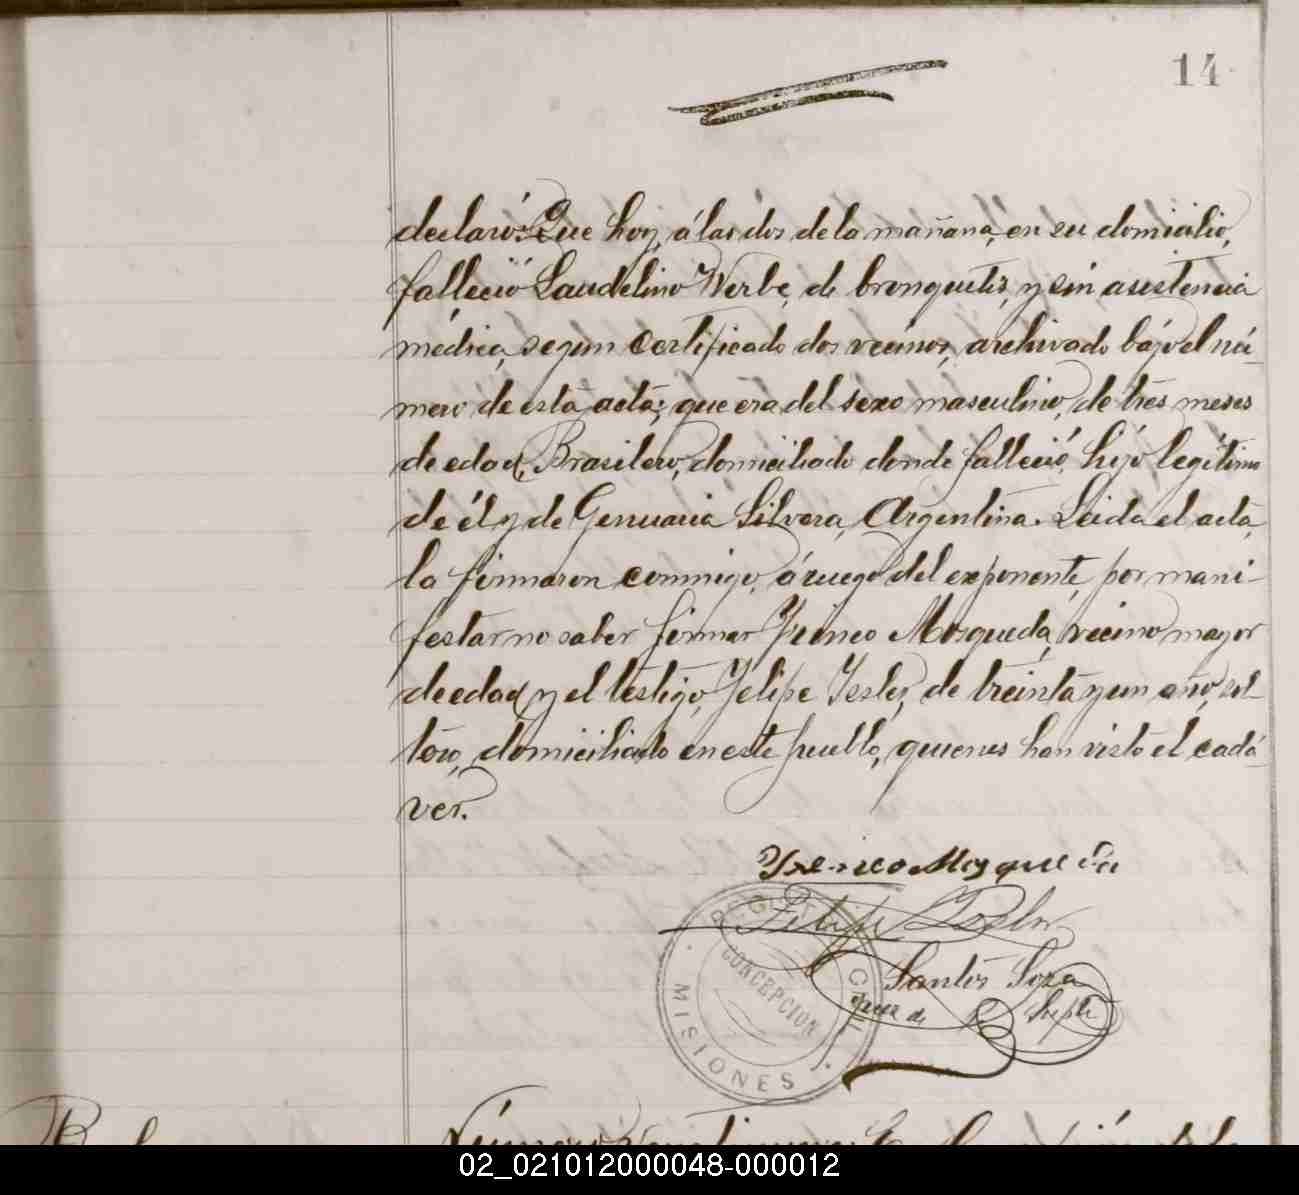 14
declaró: Que hoy, á las dos de la mañana, en su domicilio,
falleció Laudelino Werbe, de bronquitis, y sin asistencia
médica, segun certificado dos vecinos, archivado bájo el nú-
mero de está actá; que era del sexo masculino, de tres meses
de edad, Brasilero, domiciliado donde falleció, hijo legítimo
de él y de Genuaria Silvera, Argentina. Leida el acta,
la firmaron conmigo, á ruego del exponente, por mani-
festar no saber firmar Irineo Mosqueda, vecino mayor
de edad y el testigo, Felipe Tesler, de treinta y un año, sol-
tero, domiciliado en este pueblo, quienes han visto el cadá-
ver.
Ireneo Mosqueda
Felipe
Santos Soza
Juez de P. Suplte
REGISTRO CIVIL
CONCEPCION
MISIONES
Número
02_021012000048-000012